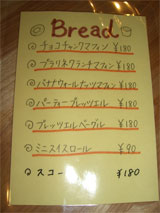 Bread
チョコチャンクマフィン ¥180
プラリネクランチマフィン ¥180
バナナウォールナッツマフィン ¥180
パーティープレッツェル ¥180
プレッツェルベーグル ¥180
ミニスイスロール ¥90
スコー ¥180